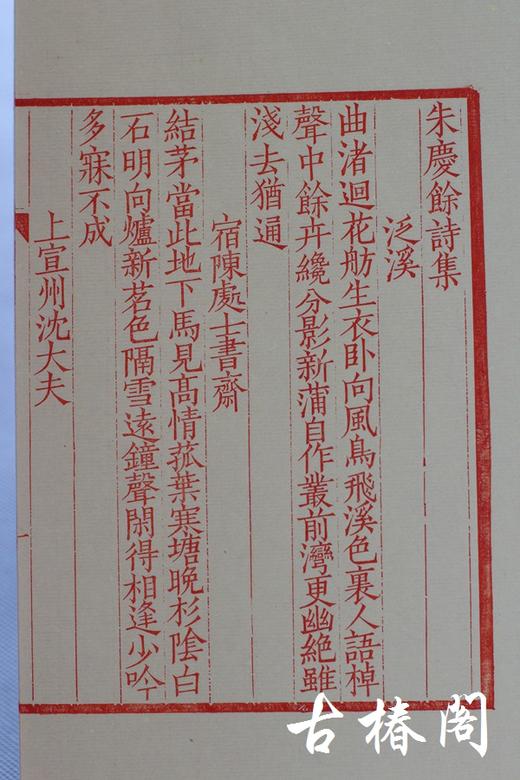 朱慶餘詩集
泛溪
曲渚迴花舫生衣卧向風鳥飛溪色裏人語棹
聲中餘卉纔分影新蒲自作叢前灣更幽絶雖
淺去猶通
宿陳處士書齋
結茅當此地下馬見髙情菰葉寒塘晚杉陰白
石明向爐新茗色隔雪遠鐘聲閑得相逢少吟
多寐不成
上宣州沈大夫
古椿阁